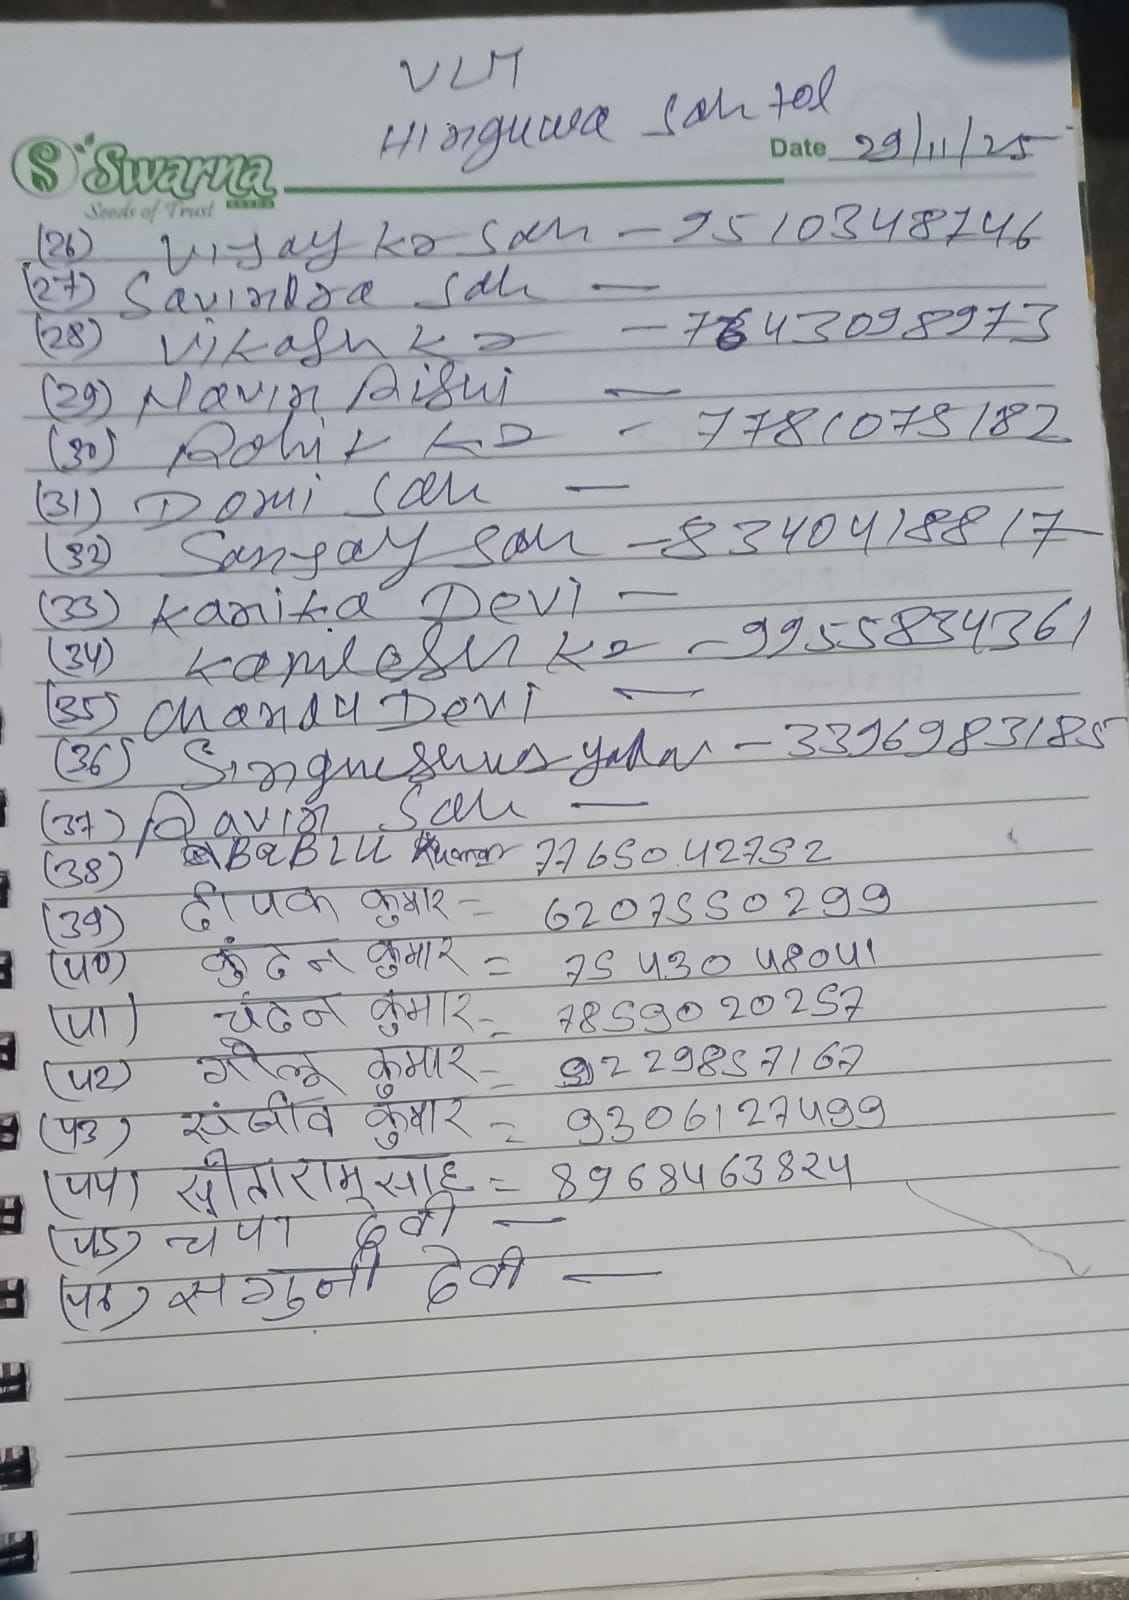 VLM
Hinguwa Sah tol
Swarna
Seeds of Trust
Date 29/11/25
(26) Vijay Kr Sah - 9510348746
(27) Savindra Sah —
(28) Vikash Kr - 7643098973
(29) Navin Rishi —
(30) Rohit Kr - 7781075182
(31) Domi Sah —
(32) Sanjay Sah - 8340418817
(33) Kanika Devi —
(34) Kamlesh Kr - 9955834361
(35) Chandu Devi —
(36) Singheshwar Yadav - 3396983185
(37) Ravin Sah —
(38) BaBLU Kumar 7765042752
(39) दीपक कुमार = 6207550299
(४०) कुंदन कुमार = 7543048041
(४१) चंदन कुमार = 7859020257
(४२) गोलू कुमार = 9229857167
(४३) संजीव कुमार = 9306127499
(४४) सीताराम साह = 8968463824
(४५) चंपा देवी —
(४६) सगुनी देवी —